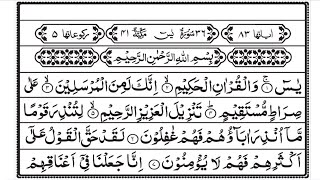 اٰیاتها ۸۳ ۳۶ سُوْرَةُ یٰسٓ مَکِّیَّةٌ ۴۱ رکوعاتها ۵
بِسْمِ اللّٰهِ الرَّحْمٰنِ الرَّحِیْمِ
یٰسٓ ۚ وَالْقُرْاٰنِ الْحَكِیْمِ ۙ اِنَّكَ لَمِنَ الْمُرْسَلِیْنَ ۙ عَلٰی
صِرَاطٍ مُّسْتَقِیْمٍ ؕ تَنْزِیْلَ الْعَزِیْزِ الرَّحِیْمِ ۙ لِتُنْذِرَ قَوْمًا
مَّاۤ اُنْذِرَ اٰبَآؤُهُمْ فَهُمْ غٰفِلُوْنَ لَقَدْ حَقَّ الْقَوْلُ عَلٰۤی
اَكْثَرِهِمْ فَهُمْ لَا یُؤْمِنُوْنَ اِنَّا جَعَلْنَا فِیْۤ اَعْنَاقِهِمْ